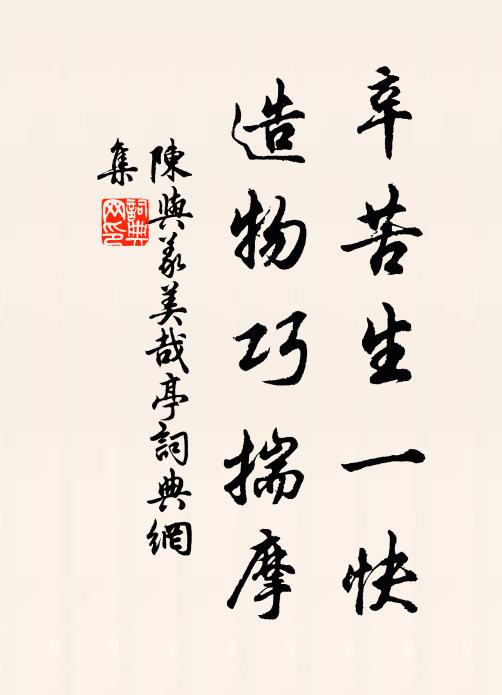 辛苦生一快
造物巧揣摩
陳與義美哉亭詞典網
集
詞典
网印